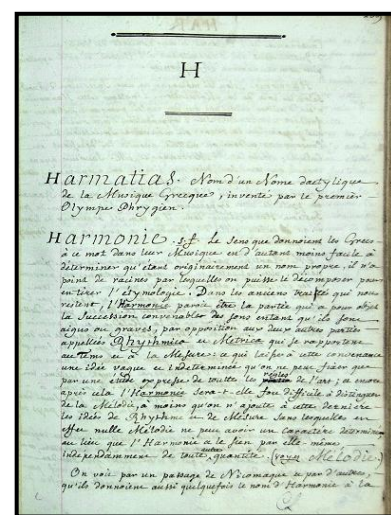 H
Harmatias. Nom d'un Nome dactylique
de la Musique Grecque, inventé par le premier
Olympe Phrygien.
Harmonie. s.f. Le sens que donnoient les Grecs
à ce mot dans leur Musique est d'autant moins facile à
déterminer qu'étant originairement un nom propre, il n'a
point de racines par lesquelles on puisse le décomposer pour
en tirer l'étymologie. Dans les anciens traités qui nous
restent, l'Harmonie paroit être la partie qui a pour objet
la succession convenable des sons entant qu'ils sont
aigus ou graves, par opposition aux deux autres parties
appellées Rhythmica et Metrica qui se rapportent
au tems et à la Mesure: ce qui laisse à cette convenance
une idée vague et indeterminée qu'on ne peut fixer que
par une étude expresse de toutes les règles de l'art; et encore
après cela l'Harmonie sera-t-elle fort difficile à distinguer
de la Mélodie, à moins qu'on n'ajoute à cette dernière
les idées de Rhythme et de Mesure sans lesquelles en
effet nulle Mélodie ne peut avoir un Caractère déterminé
au lieu que l'Harmonie a le sien par elle-même
independamment de toute autre quantité. (voyez Mélodie.)
On voit par un passage de Nicomaque et par d'autres
qu'ils donnoient aussi quelquefois le nom d'Harmonie à la